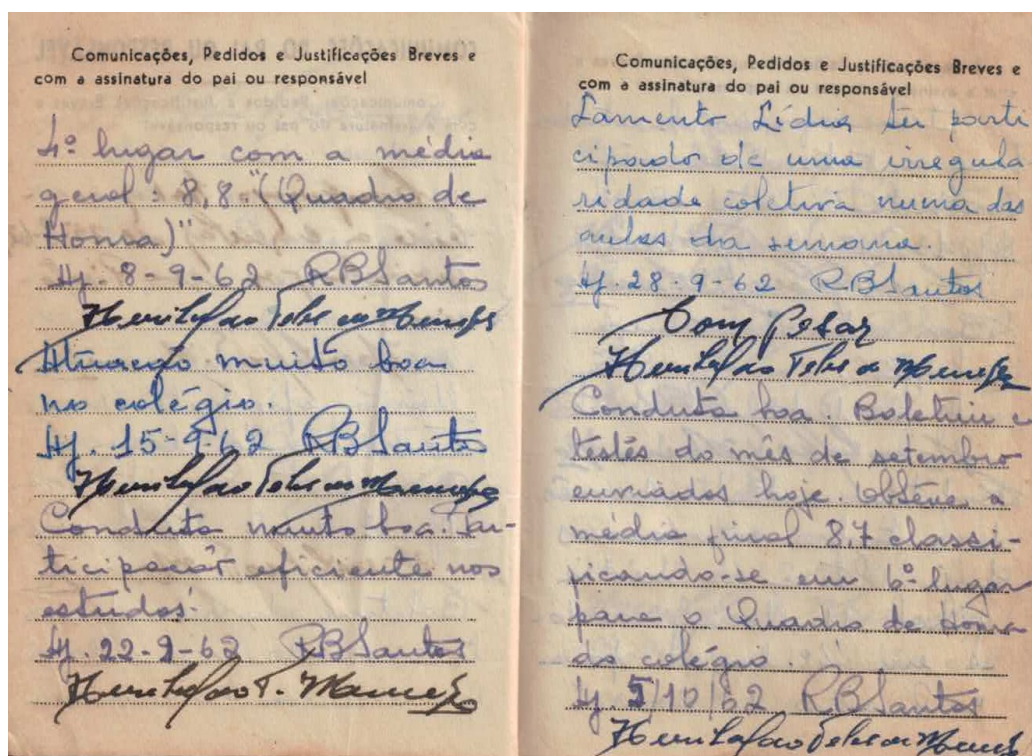 Comunicações, Pedidos e Justificações Breves e
com a assinatura do pai ou responsável
4º lugar com a média
geral: 8,8. "(Quadro de
Honra)"
Aj. 8-9-62 RBSantos
Teles de Menezes
Atuação muito boa
no colégio.
Aj. 15-9-62 RBSantos
Teles de Menezes
Conduta muito boa. Par-
ticipação eficiente nos
estudos.
Aj. 22-9-62 RBSantos
T. Menezes
Comunicações, Pedidos e Justificações Breves e
com a assinatura do pai ou responsável
Lamento Lídia ter parti
cipado de uma irregula
ridade coletiva numa das
aulas da semana.
Aj. 28-9-62 RBSantos
Com pesar
Teles de Menezes
Conduta boa. Boletim e
testes do mês de setembro
enviados hoje. Obteve a
média final 8,7 classi-
ficando-se em 6º lugar
para o Quadro de Honra
do colégio.
Aj. 5/10/62 RBSantos
Teles de Menezes